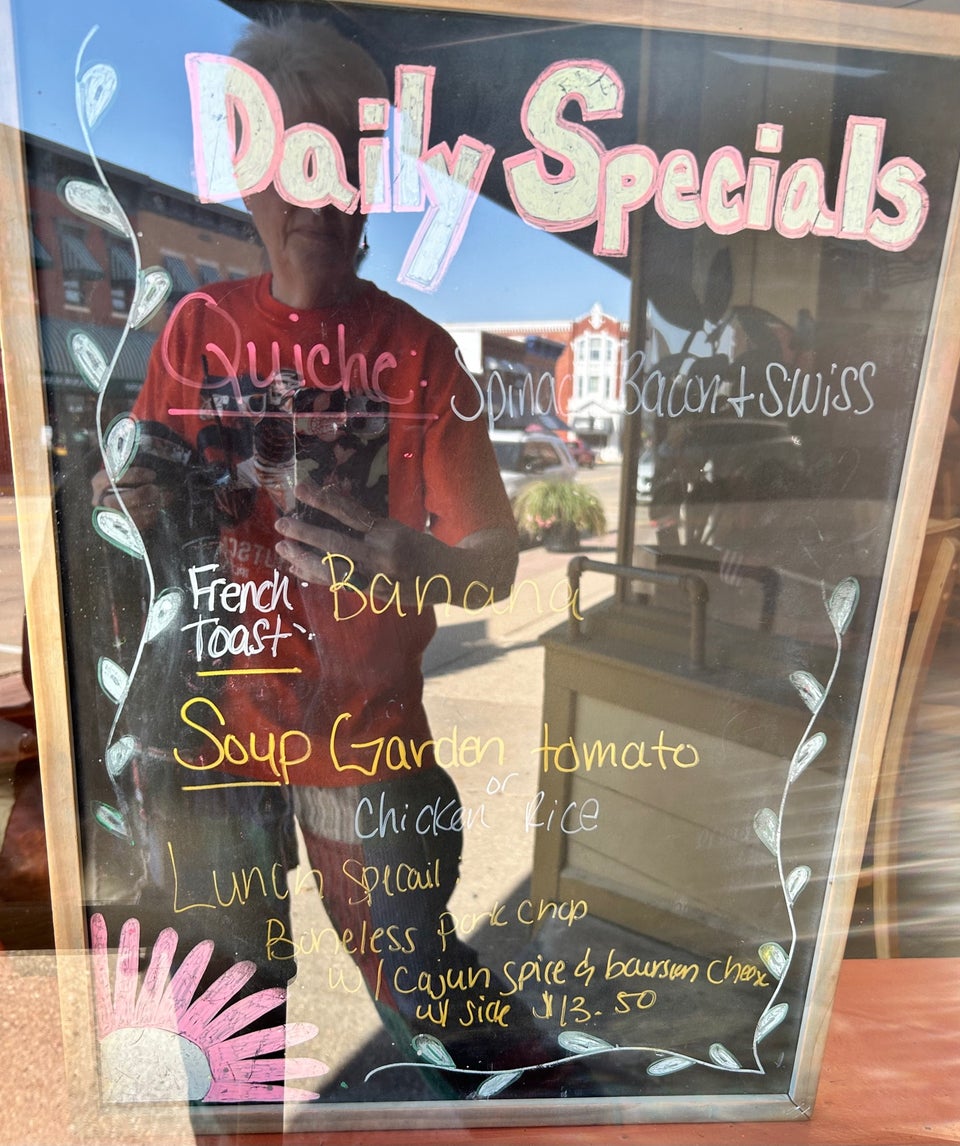 Daily Specials
Quiche: Spinach Bacon + Swiss
French Toast: Banana
Soup Garden tomato
or
Chicken Rice
Lunch Specail
Boneless pork chop
w/ Cajun spice & boursen chees
w/ side $13.50